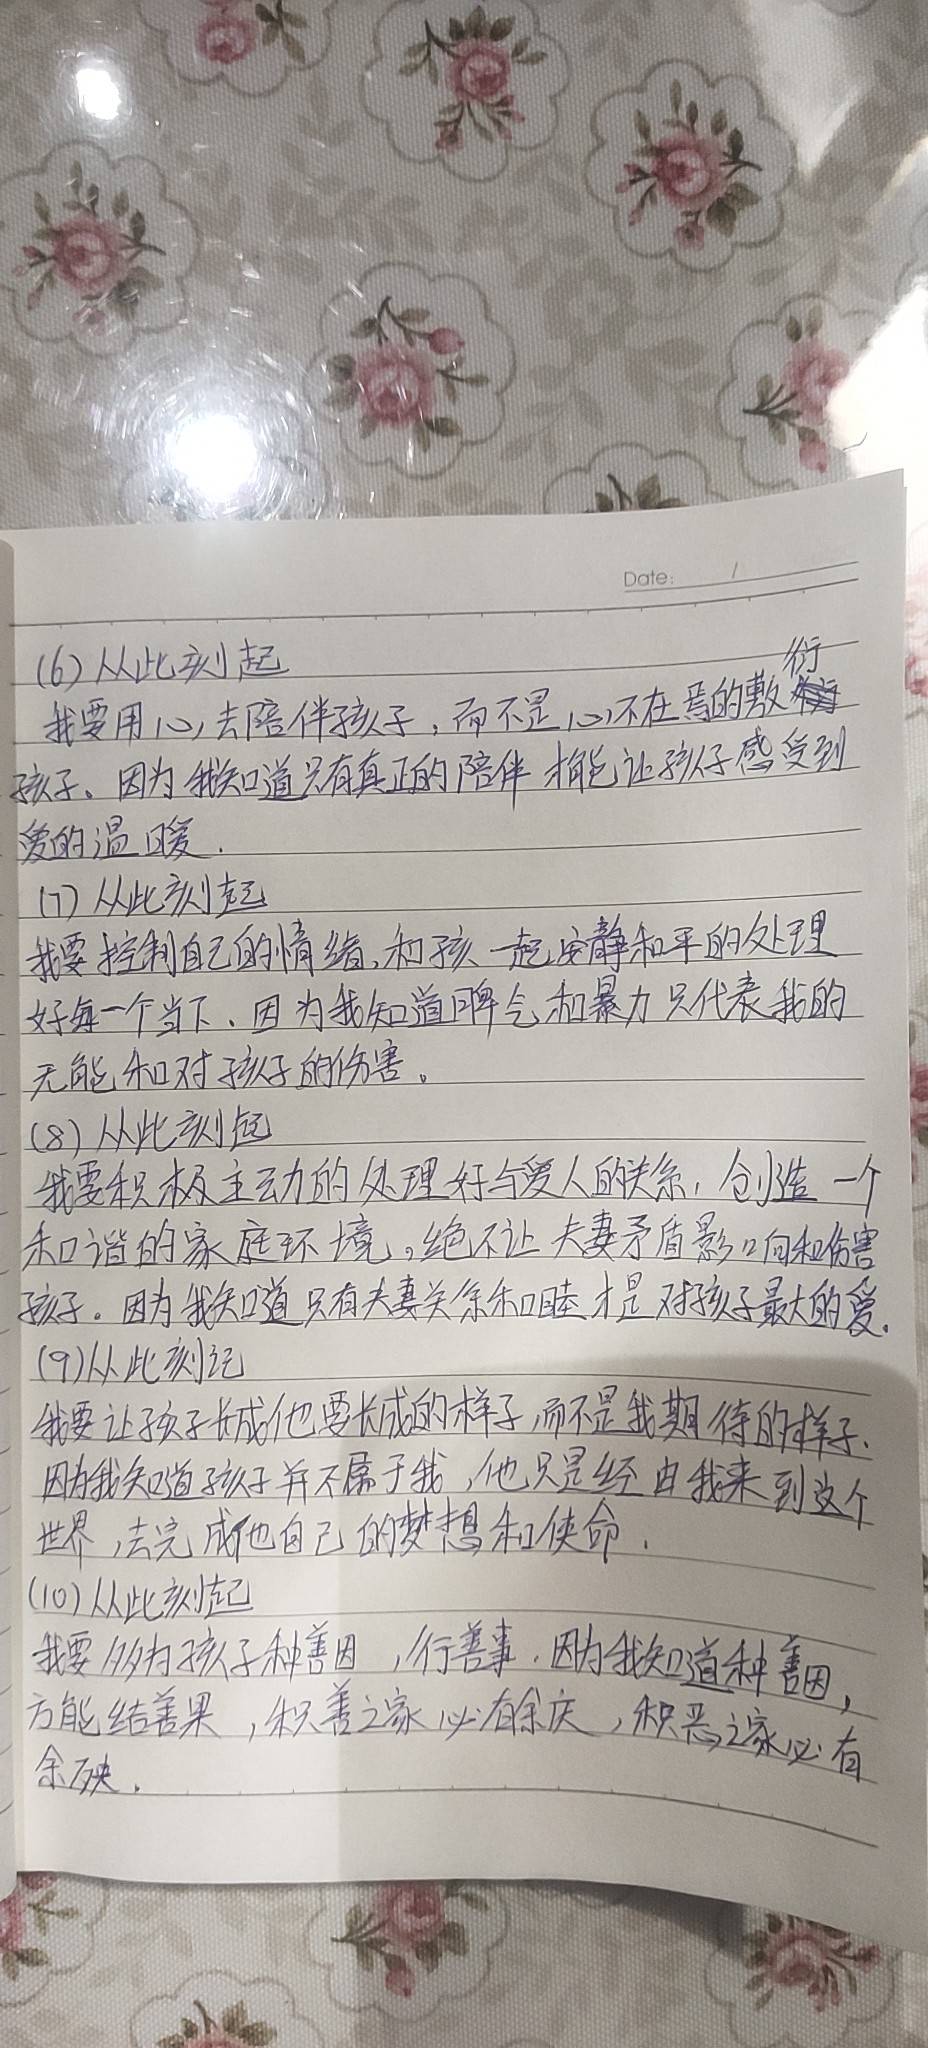 Date: /
(6) 从此刻起
我要用心去陪伴孩子,而不是心不在焉的敷衍
孩子。因为我知道只有真正的陪伴才能让孩子感受到
爱的温暖.
(7) 从此刻起
我要控制自己的情绪,和孩一起安静和平的处理
好每一个当下、因为我知道脾气和暴力只代表我的
无能和对孩子的伤害。
(8) 从此刻起
我要积极主动的处理好与爱人的关系,创造一个
和谐的家庭环境。绝不让夫妻矛盾影响和伤害
孩子。因为我知道只有夫妻关系和睦才是对孩子最大的爱.
(9)从此刻记
我要让孩子长成他要长成的样子,而不是我期待的样子.
因为我知道孩子并不属于我,他只是经由我来到这个
世界,去完成他自己的梦想和使命.
(10)从此刻起
我要多为孩子种善因,行善事.因为我知道种善因,
方能结善果,积善之家必有余庆,积恶之家必有
余殃.